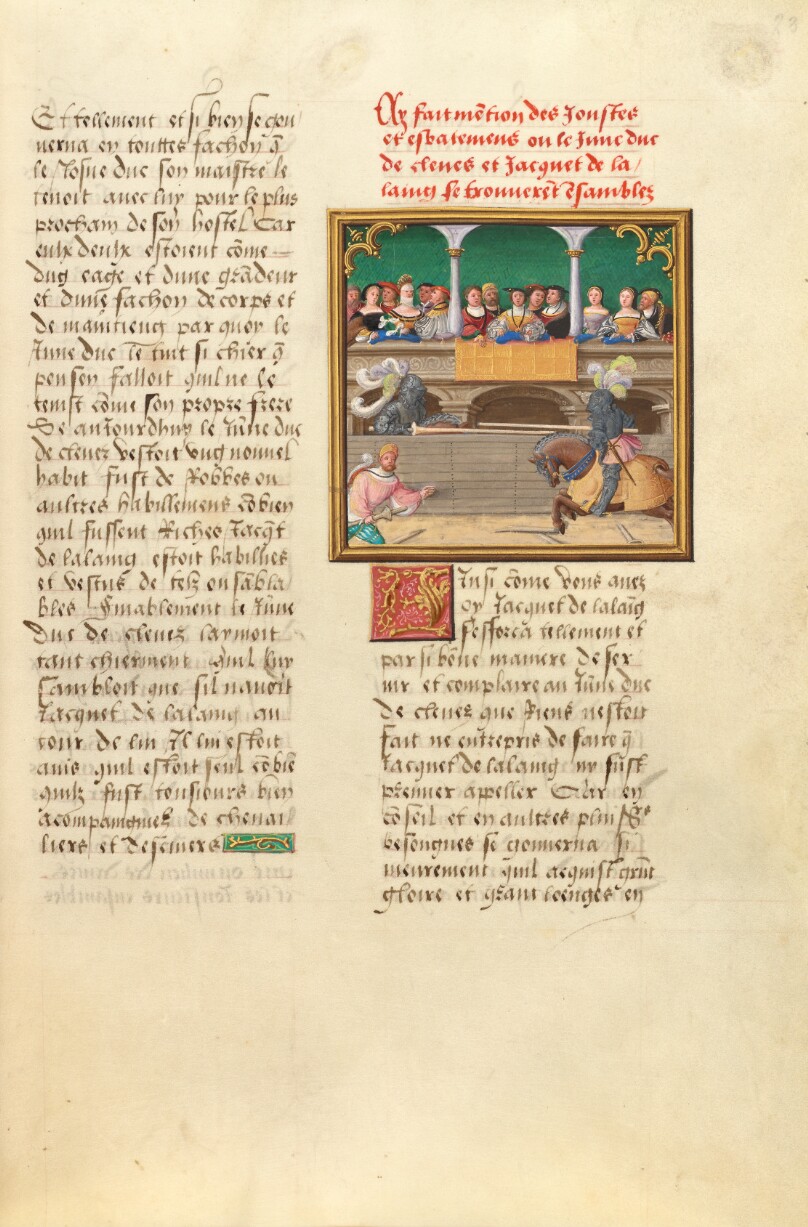 Et tellement et si bien se gou
uerna en touttes fachon q̃
le Josne duc son maistre le
tenoit auec luy pour le plus
prochain de son hostel Car
eulx deulx estoient cõme
dug eage et dune grãdeur
et dune fachon de corps et
de maintieng par quoy le
June duc le tint si chier q̃
pensen falloit quil ne le
tenist cõme son propre frere
Se aujourdhuy le June duc
de cleues vestoit vng nouuel
habit fust de Robbes ou
aultres habillemens cõbien
quil fussent Riches Jacq̃t
de lalaing estoit habillies
et vestus de telz ou sãbla
bles Finablement le June
duc de cleues laymoit
tant chierement quil luy
sambloit que sil nauoit
Jacquet de lalaing au
tour de luy Il luy estoit
auis quil estoit seul cõbie
quilz fust tousiours bien
acompaingnies de cheual
liers et descuiers
Cy fait mẽtion des Joustes
et esbatemens ou le June duc
de cleues et Jacquet de la
laing se trouuerẽt ẽsamblez
Ainsi cõme vous auez
oy Jacquet de lalaĩg
sefforca tellement et
par si bõne maniere de ser
uir et complaire au June duc
de cleues que Riens nestoit
fait ne entrepris de faire q̃
Jacquet de lalaing ny fust
premier appeller Car en
cõseil et en aultres pluissrs
besongnes se gouuerna si
meurement quil acquist grãt
gloire et grant loenges en